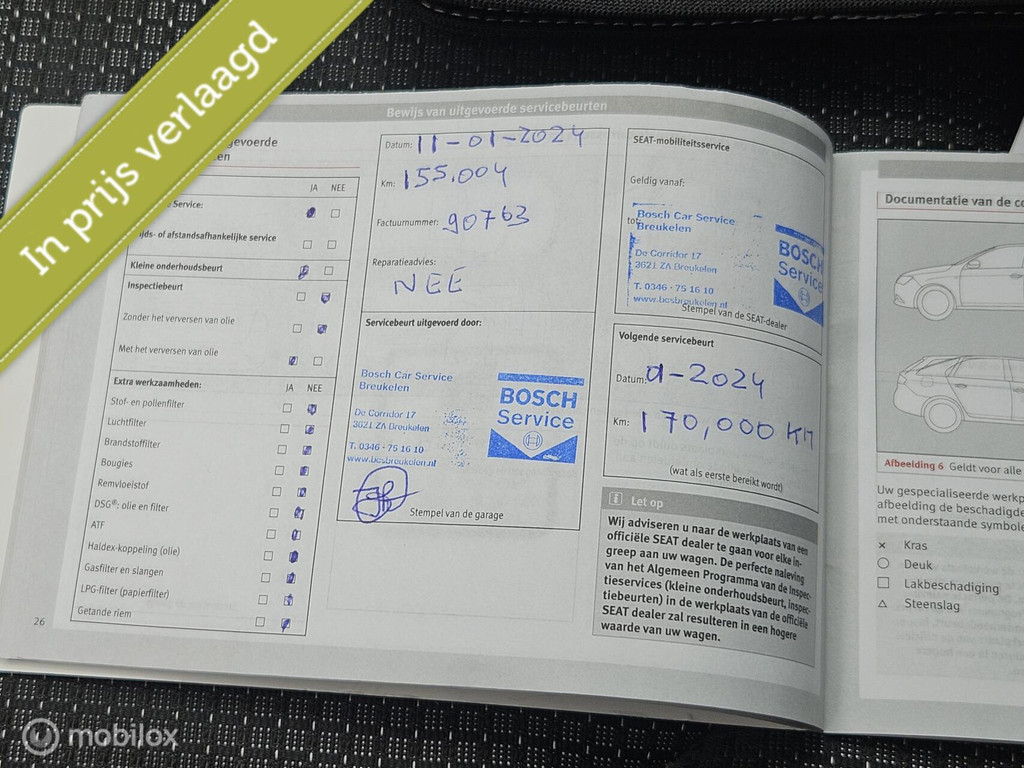 In prijs verlaagd
Bewijs van uitgevoerde servicebeurten
JA NEE
Service:
afstandsafhankelijke service
Kleine onderhoudsbeurt
Inspectiebeurt
Zonder het verversen van olie
Met het verversen van olie
Extra werkzaamheden: JA NEE
Stof- en pollenfilter
Luchtfilter
Brandstoffilter
Bougies
Remvloeistof
DSG®: olie en filter
ATF
Haldex-koppeling (olie)
Gasfilter en slangen
LPG-filter (papierfilter)
Getande riem
26
Datum: 11-01-2024
Km: 155.004
Factuurnummer: 90763
Reparatieadvies:
NEE
Servicebeurt uitgevoerd door:
Bosch Car Service
Breukelen
De Corridor 17
3621 ZA Breukelen
T. 0346 - 75 16 10
www.bcsbreukelen.nl
BOSCH
Service
Stempel van de garage
SEAT-mobiliteitsservice
Geldig vanaf:
tot:
Bosch Car Service
Breukelen
De Corridor 17
3621 ZA Breukelen
T. 0346 - 75 16 10
www.bcsbreukelen.nl
BOSCH
Service
Stempel van de SEAT-dealer
Volgende servicebeurt
Datum: -2024
Km: 170,000 KM
(wat als eerste bereikt wordt)
i Let op
Wij adviseren u naar de werkplaats van een
officiële SEAT dealer te gaan voor elke in-
greep aan uw wagen. De perfecte naleving
van het Algemeen Programma van de Inspec-
tieservices (kleine onderhoudsbeurt, inspec-
tiebeurten) in de werkplaats van de officiële
SEAT dealer zal resulteren in een hogere
waarde van uw wagen.
Documentatie van de
Afbeelding 6 Geldt voor alle
Uw gespecialiseerde
afbeelding de
met onderstaande
× Kras
○ Deuk
□ Lakbeschadiging
△ Steenslag
mobilox